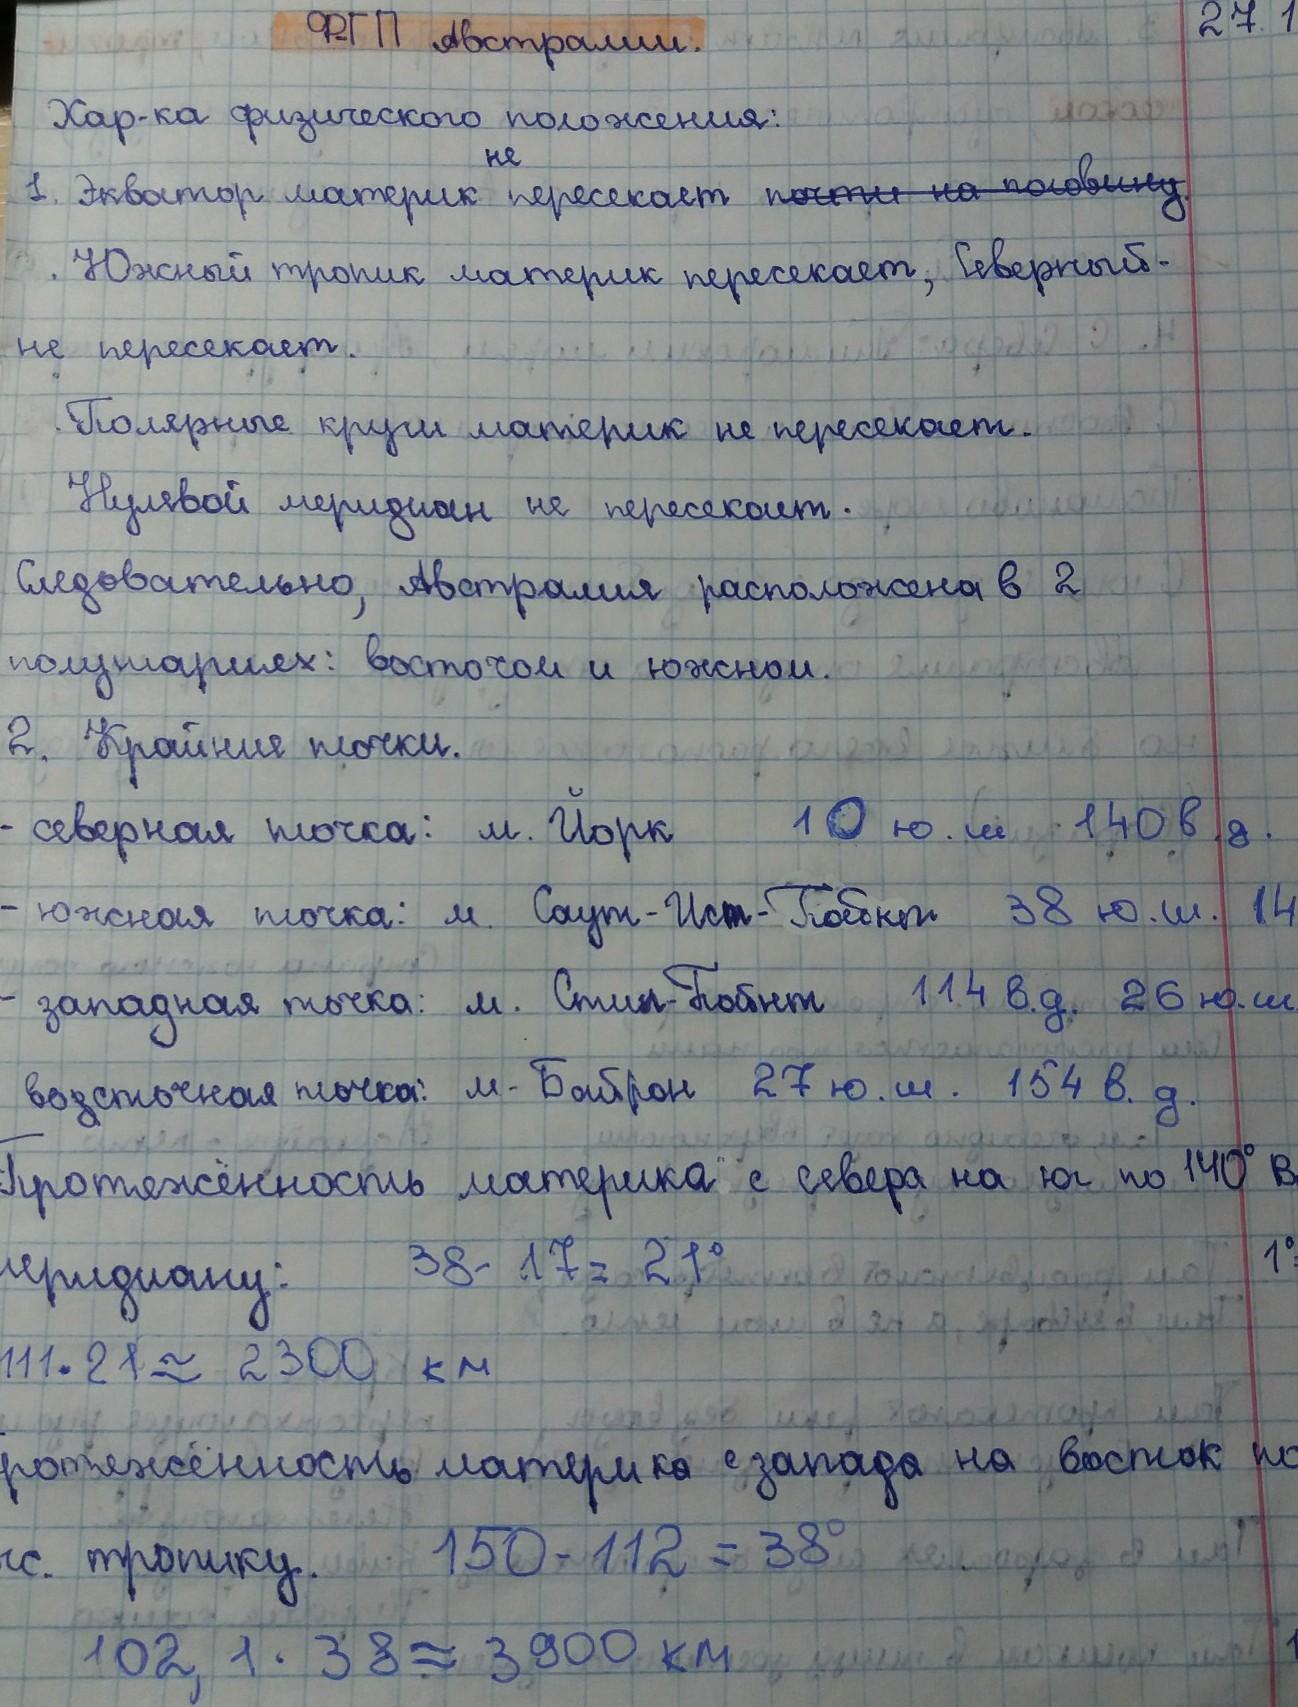 ФГП Австралии. 27.1
Хар-ка физического положения:
не
1. Экватор материк пересекает почти на половину.
Южный тропик материк пересекает, Северный-
не пересекает.
Полярные круги материк не пересекает.
Нулевой меридиан не пересекает.
Следовательно, Австралия расположена в 2
полушариях: восточом и южном.
2. Крайние точки.
- северная точка: м. Йорк 10 ю.ш 140 в.д.
- южная точка: м. Саут-Ист-Пойнт 38 ю.ш. 14
- западная точка: м. Стип-Пойнт 114 в.д. 26 ю.ш
возсточная точка: м. Байрон 27 ю.ш. 154 в.д.
Протяжённость материка с севера на юг по 140° В
меридиану: 38- 17= 21° 1°=
111·21≈ 2300 км
ротяжённость материка с запада на восток по
ж. тропику. 150-112=38°
102,1·38≈3900 км 1